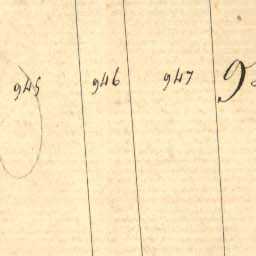 945 946 947